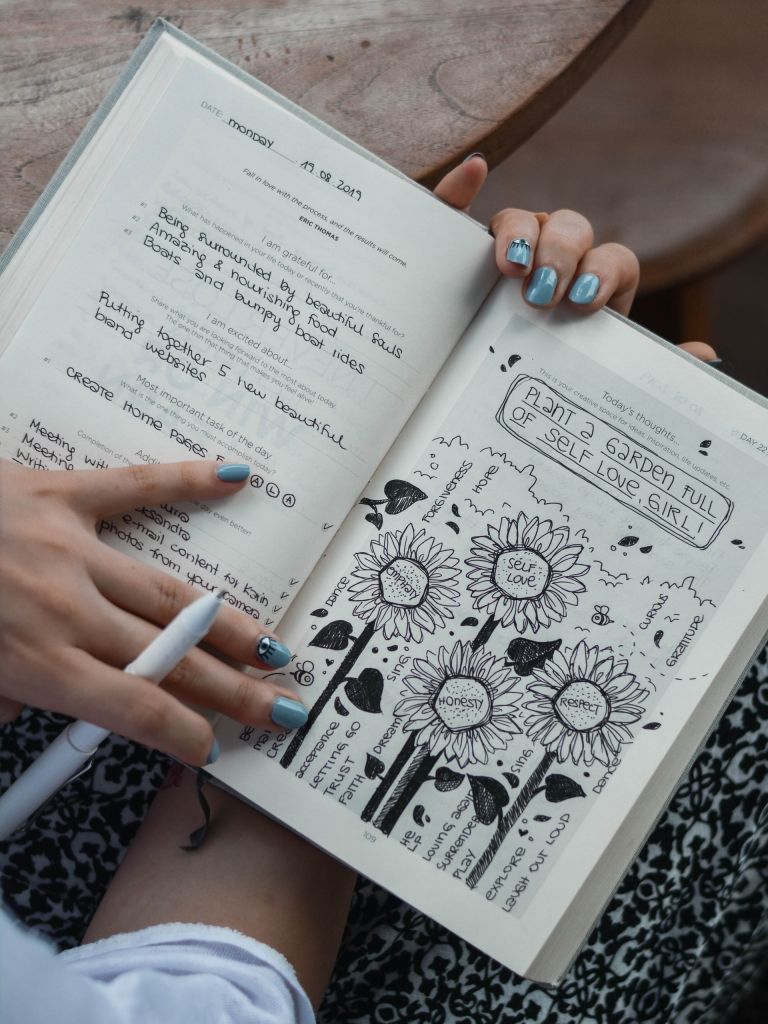 DATE: monday 19.08.2019
Fall in love with the process, and the results will come.
ERIC THOMAS
I am grateful for...
What has happened in your life today or recently that you're thankful for?
#1 Being surrounded by beautiful souls
#2 Amazing & nourishing food
#3 Boats and bumpy boat rides
I am excited about...
Share what you are looking forward to the most about today.
The one thing that makes you feel alive!
Putting together 5 new beautiful
band websites
Most important task of the day
What is the one thing you must accomplish today?
#1 CREATE HOME PAGES
A L A
#2 Meeting with
#3 Meeting
day even better!
e-mail content for Karin
photos from your camera
Today's thoughts...
This is your creative space for ideas, inspiration, life updates, etc.
DAY 22
PLANT A GARDEN FULL
OF SELF LOVE, GIRL!
FORGIVENESS
HOPE
EMPATHY
SELF
LOVE
DANCE
CURIOUS
GRATITUDE
SING
HONESTY
RESPECT
acceptance
LETTING GO
TRUST
FAITH
Dream
SING
Dance
HELP
LOVING
SURRENDER
PLAY
EXPLORE
LAUGH OUT LOUD
109